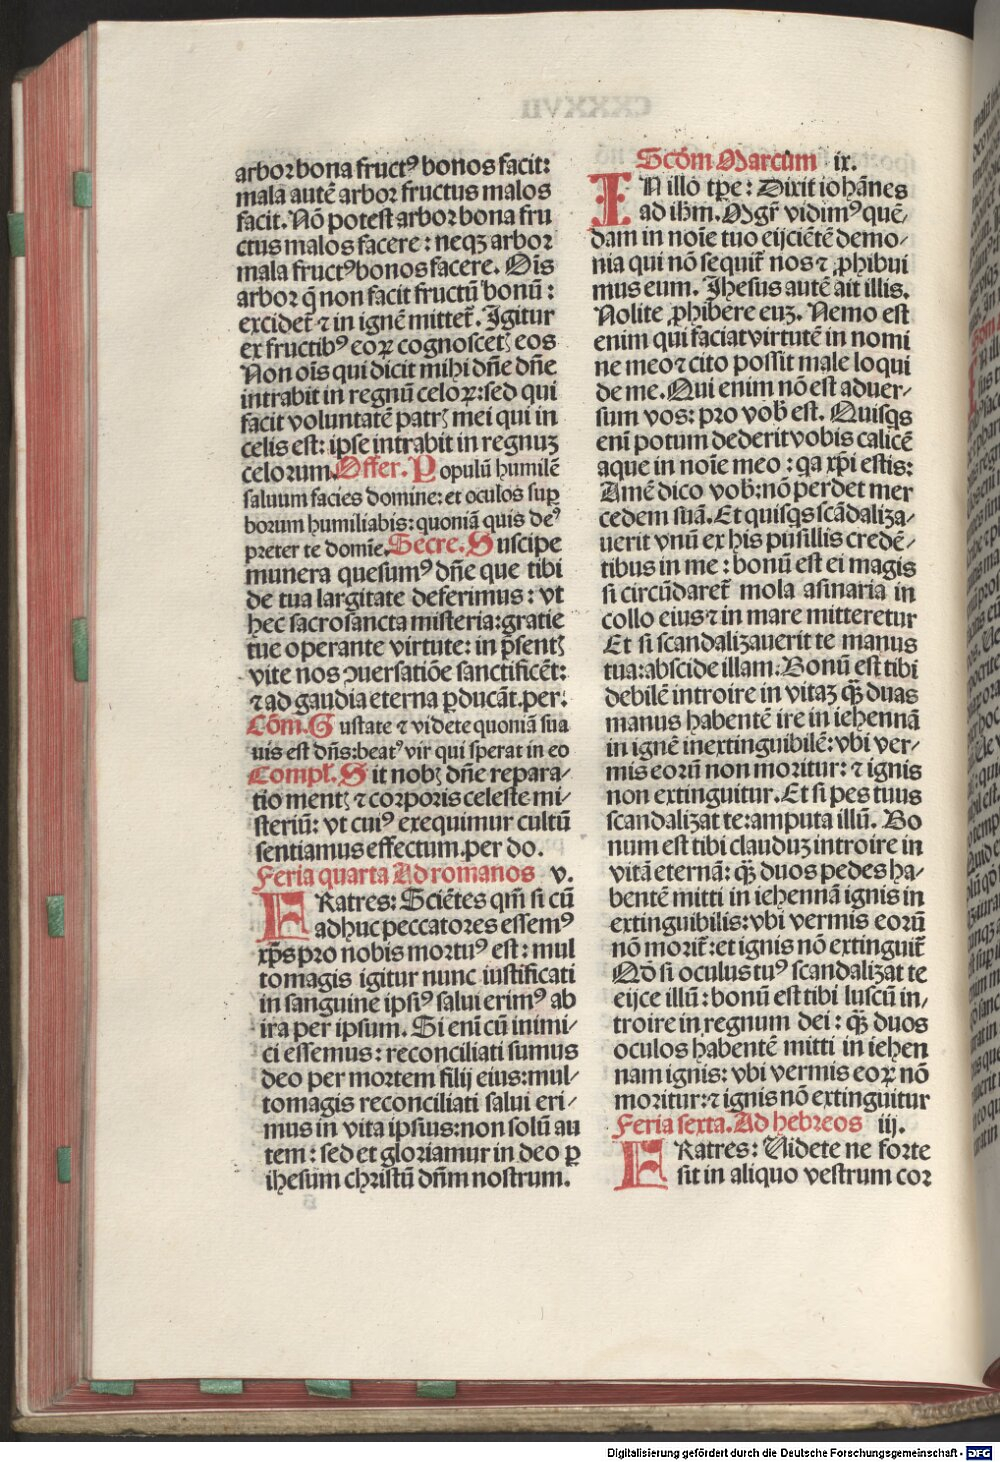 arbor bona fructꝰ bonos facit:
mala autē arbor fructus malos
facit. Nō potest arbor bona fru
ctus malos facere: neqꝫ arbor
mala fructꝰ bonos facere. Oīs
arbor q̄ non facit fructū bonū:
excidet̄ ⁊ in ignē mittet̄. Igitur
ex fructibꝰ eoꝝ cognoscetꝭ eos
Non oīs qui dicit mihi dn̄e dn̄e
intrabit in regnū celoꝝ: sed qui
facit voluntatē patrꝭ mei qui in
celis est: ipse intrabit in regnuꝫ
celorum. Offer. Populū humilē
saluum facies domine: et oculos suꝑ
borum humiliabis: quoniā quis deꝰ
preter te domīe. Secre. Suscipe
munera quesumꝰ dn̄e que tibi
de tua largitate deferimus: vt
hec sacrosancta misteria: gratie
tue operante virtute: in p̄sentꝭ
vite nos ꝯuersatiōe sanctificēt:
⁊ ad gaudia eterna ꝑducāt. per.
Cōm. Gustate ⁊ videte quoniā sua
uis est dn̄s: beatꝰ vir qui sperat in eo
Compl̄. Sit nobꝭ dn̄e repara/
tio mentꝭ ⁊ corporis celeste mi/
steriū: vt cuiꝰ exequimur cultū
sentiamus effectum. per do.
Feria quarta Ad romanos v.
FRatres: Sciētes qm̄ si cū
adhuc peccatores essemꝰ
xp̄s pro nobis mortuꝰ est: mul
tomagis igitur nunc iustificati
in sanguine ipsiꝰ salui erimꝰ ab
ira per ipsum. Si enī cū inimi/
ci essemus: reconciliati sumus
deo per mortem filij eius: mul/
tomagis reconciliati salui eri/
mus in vita ipsius: non solū au
tem: sed et gloriamur in deo ꝑ
ihesum christū dn̄m nostrum.
Scd̄m Marcum ix.
IN illo tp̄e: Dixit iohānes
ad ihm̄. Mgr̄ vidimꝰ quē/
dam in noīe tuo eijciētē demo/
nia qui nō sequit̄ nos ⁊ ꝓhibui
mus eum. Jhesus autē ait illis.
Nolite ꝓhibere euꝫ. Nemo est
enim qui faciat virtutē in nomi
ne meo ⁊ cito possit male loqui
de me. Qui enim nō est aduer/
sum vos: pro vob̄ est. Quisqs
enī potum dederit vobis calicē
aque in noīe meo: qa xp̄i estis:
Amē dico vob̄: nō perdet mer
cedem suā. Et quisqs scādaliza/
uerit vnū ex his pusillis credē/
tibus in me: bonū est ei magis
si circūdaret̄ mola asinaria in
collo eius ⁊ in mare mitteretur
Et si scandalizauerit te manus
tua: abscide illam. Bonū est tibi
debilē introire in vitaꝫ q̄ꝫ duas
manus habentē ire in iehennā
in ignē inextinguibilē: vbi ver/
mis eorū non moritur: ⁊ ignis
non extinguitur. Et si pes tuus
scandalizat te: amputa illū. Bo
num est tibi clauduꝫ introire in
vitā eternā: q̄ꝫ duos pedes ha/
bentē mitti in iehennā ignis in
extinguibilis: vbi vermis eorū
nō morit̄: et ignis nō extinguit̄
Qd̄ si oculus tuꝰ scandalizat te
eijce illū: bonū est tibi luscū in/
troire in regnum dei: q̄ꝫ duos
oculos habentē mitti in iehen
nam ignis: vbi vermis eoꝝ nō
moritur: ⁊ ignis nō extinguitur
Feria sexta. Ad hebreos iij.
FRatres: Videte ne forte
sit in aliquo vestrum cor
Digitalisierung gefördert durch die Deutsche Forschungsgemeinschaft - DFG